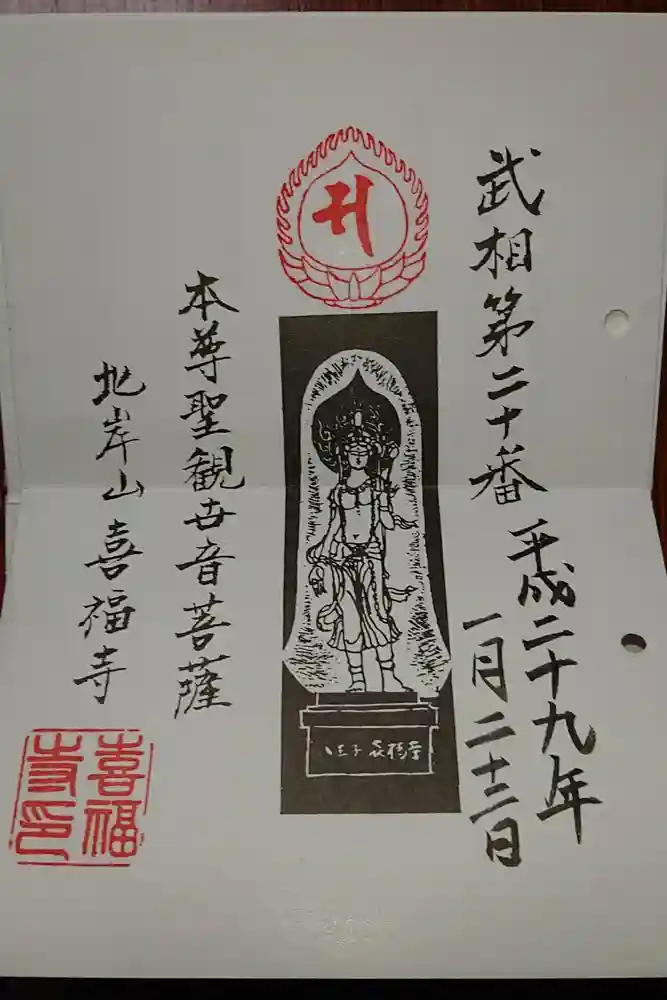 武相第二十番
平成二十九年
一月二十二日
本尊聖観世音菩薩
地岸山 喜福寺
八王子 喜福寺
喜福
寺印